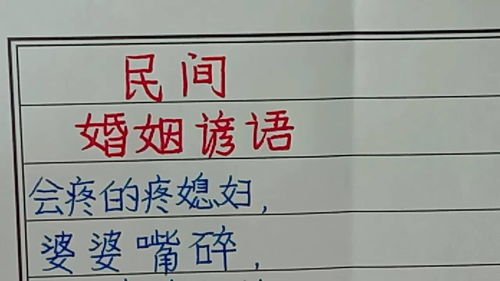 民间
婚姻谚语
会疼的疼媳妇,
婆婆嘴碎,